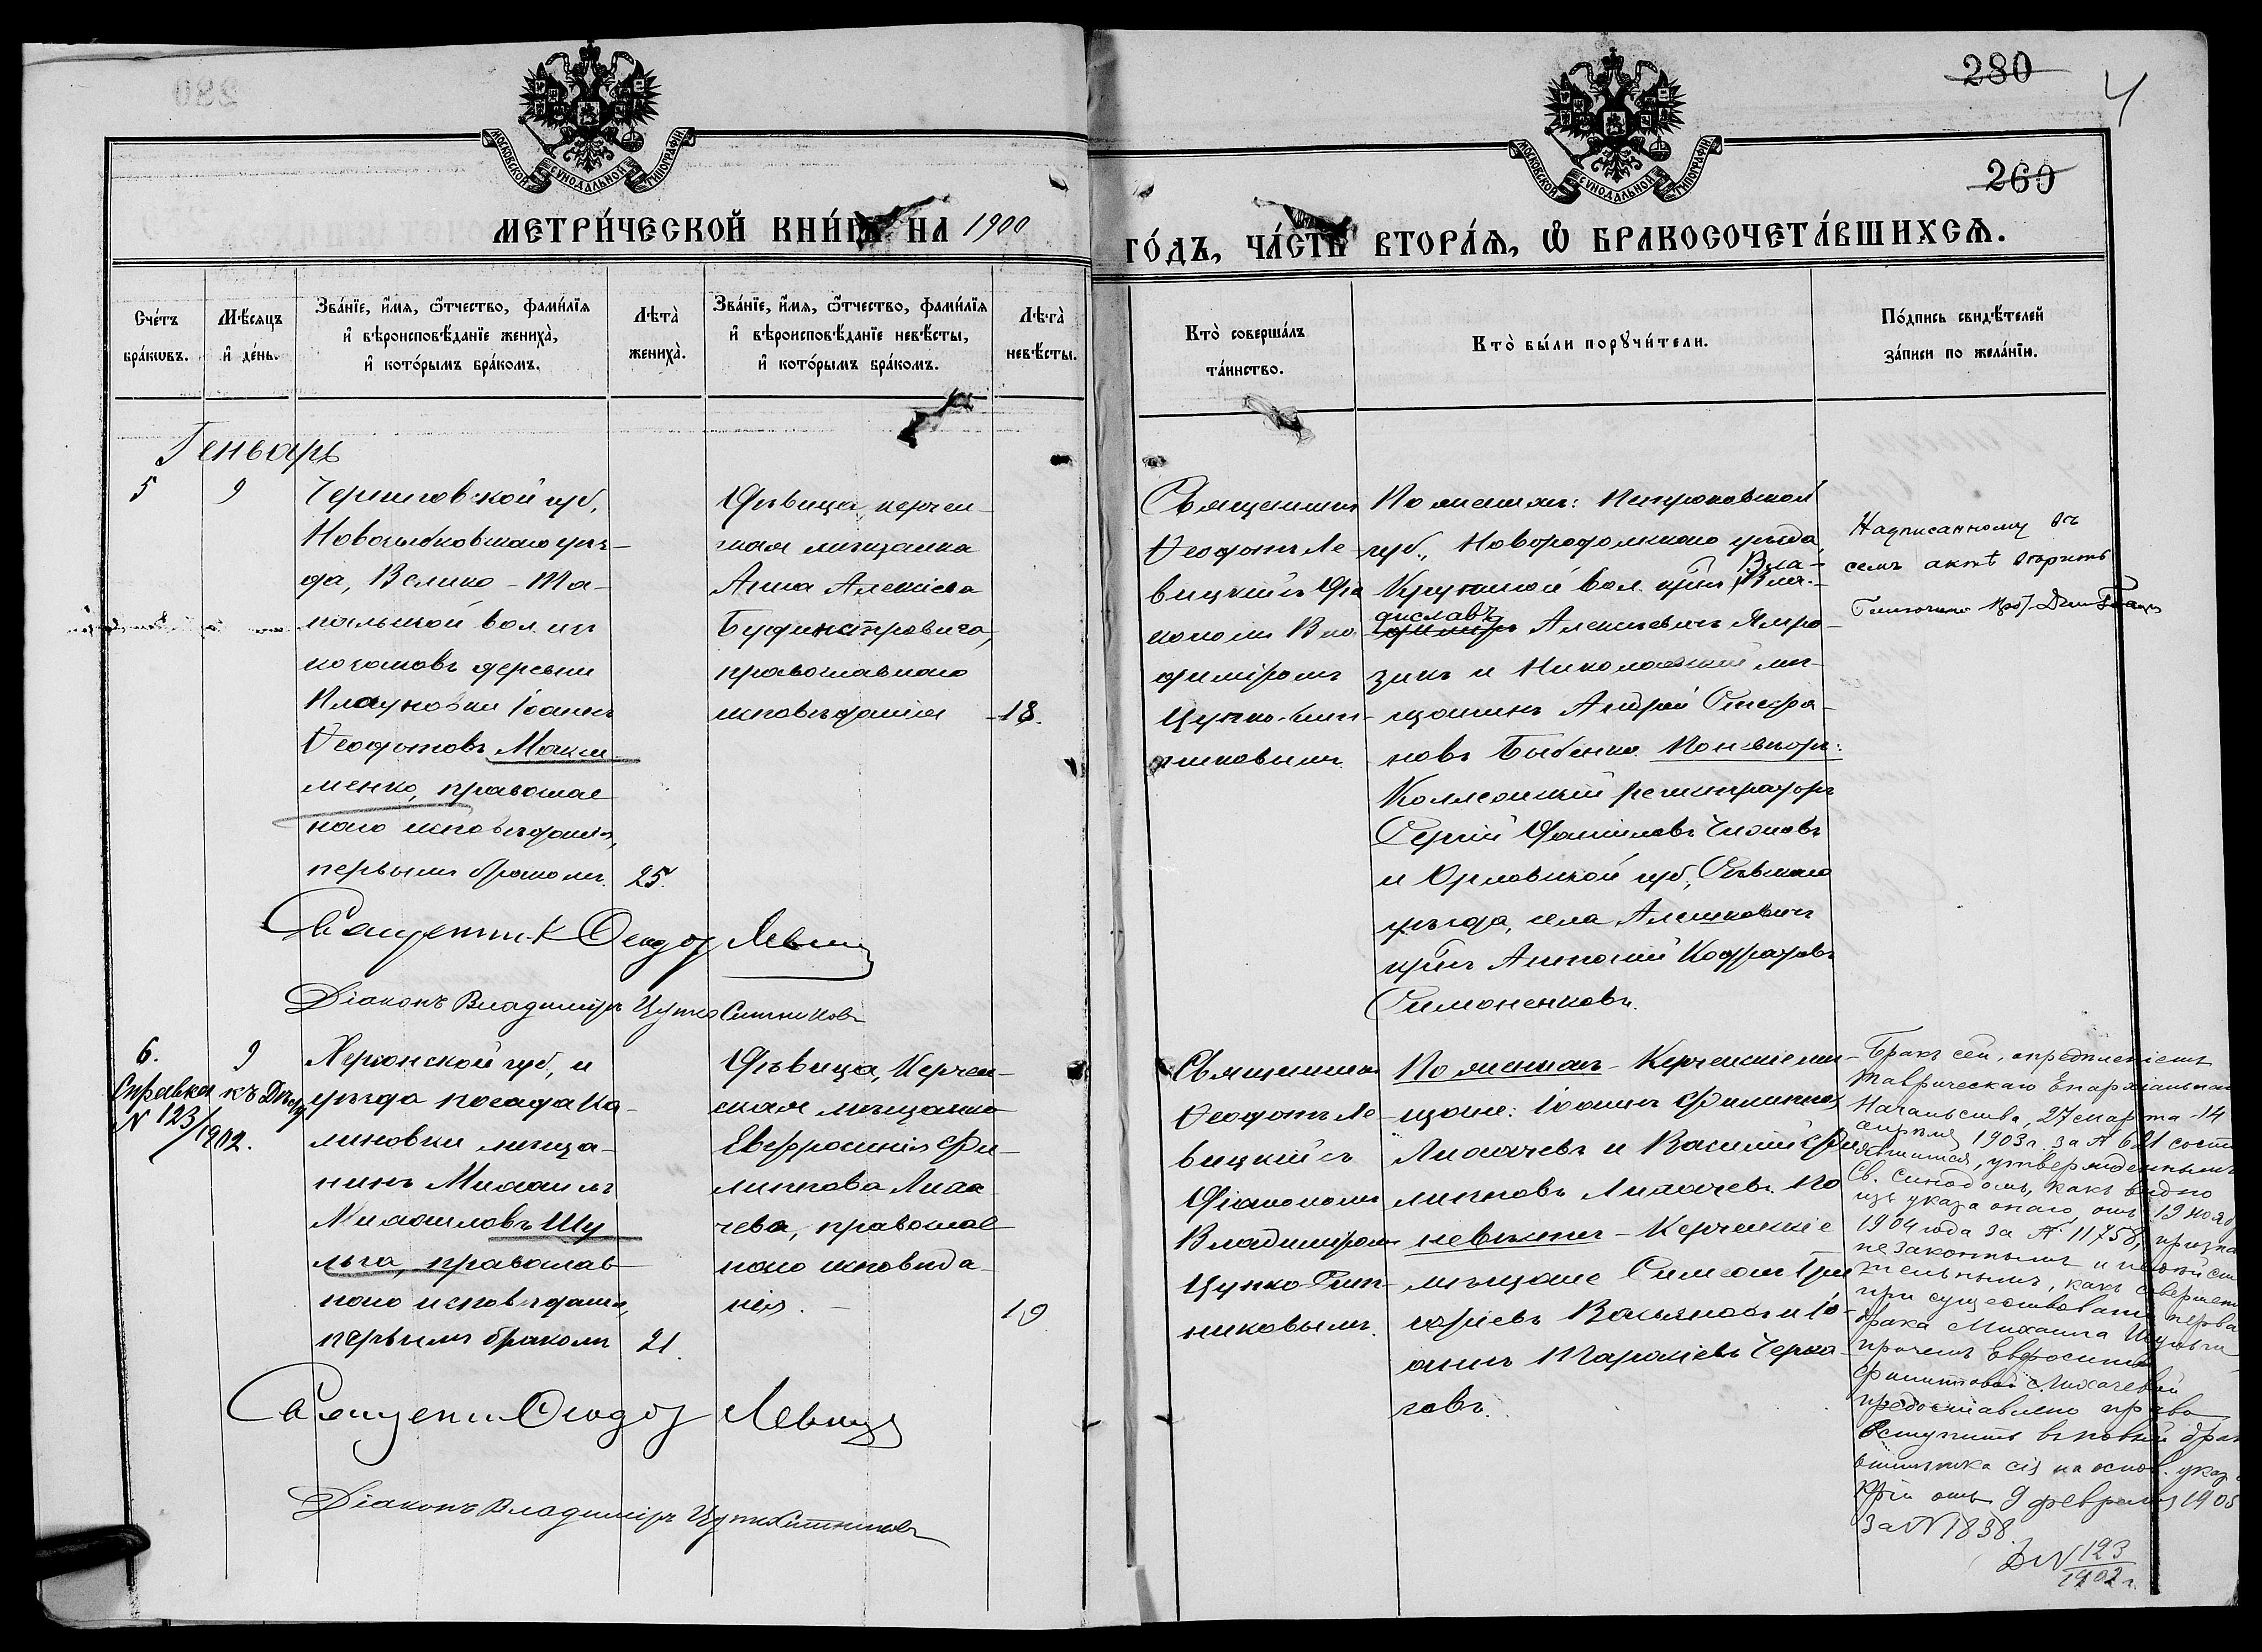 280
4
260
МОСКОВСКОЙ СѴНОДАЛЬНОЙ ТИПОГРАФІИ
МОСКОВСКОЙ СѴНОДАЛЬНОЙ ТИПОГРАФІИ
МЕТРИ́ЧЕСКОЙ КНИ́ГИ НА 1900
ГО́ДЪ, ЧА́СТЬ ВТОРА́Ѧ, Ѿ БРАКОСОЧЕТА́ВШИХСѦ.
Сче́тъ
бра́кѡвъ.
Мѣ́сяцъ
и҆ де́нь.
Зва́нїе, и҆́мя, ѻ҆́тчество, фами́лїя
и҆ вѣроисповѣ́данїе жениха̀,
и҆ кото́рымъ бра́комъ.
Лѣ́та̀
жениха̀.
Зва́нїе, и҆́мя, ѻ҆́тчество, фами́лїя
и҆ вѣроисповѣ́данїе невѣ́сты,
и҆ кото́рымъ бра́комъ.
Лѣ́та̀
невѣ́сты.
Кто̀ соверша́лъ
та́инство.
Кто̀ бы́ли порꙋчи́тели.
По́дпись свидѣ́телей
за́писи по жела́нїю.
Геньварь
5
9
Черниговской губ.
Новозыбковскаго уѣз-
да, Велико-То-
пальской вол. изъ
козаковъ деревни
Іоаннъ
Ѳеодотовъ Макси-
менко, православ
наго исповѣданія,
первымъ бракомъ.
25.
Дѣвица керчен-
ская мѣщанка
Анна Алексіева
православнаго
исповѣданія
18.
Священникъ
Ѳеодотъ Ле-
вицкій съ Діа
кономъ Вла
диміромъ
Цупко-Сит-
никовымъ.
По женихѣ:
губ., уѣзда,
вол. Вла-
диславъ Алексѣевичъ
и Николаевскій мѣ-
щанинъ Андрей Стефа-
новъ Бабенко. По невѣстѣ:
Коллежскій регистраторъ
Сергій Даниловъ
и Орловской губ., Сѣвскаго
уѣзда, села Алешковичъ
Симоненковъ.
Надписанному въ
семъ актѣ вѣрить
Священникъ Ѳеодотъ Левицкій
Діаконъ Владиміръ Цупко Ситниковъ
6.
9
Справка къ Дѣлу
N 123/1902.
Херсонской губ., и
уѣзда посада Ка-
линовки мѣща-
нинъ Михаилъ
Михаиловъ Шу
льга, православ
наго исповѣданія,
первымъ бракомъ
21.
Дѣвица, Керчен-
ская мѣщанка
Евфросинія Фи-
липпова Лиха-
чева, православ
наго исповѣда-
нія.
19
Священникъ
Ѳеодотъ Ле-
вицкій съ
Діакономъ
Владиміромъ
Цупко-Сит-
никовымъ.
По женихѣ - Керченскіе мѣ-
щане: Іоаннъ Филипповъ
Лихачевъ и Василій Фи-
липповъ Лихачевъ. По
невѣстѣ - Керченскіе
мѣщане Симеонъ Гри
горіевъ и Іо-
аннъ Тарасіевъ
Бракъ сей, опредѣленіемъ
Таврическаго Епархіальнаго
Начальства, 27 марта - 14
апрѣля 1903 г. за № 621 состо
явшимся, утвержденнымъ
Св. Синодомъ, какъ видно
изъ указа онаго, отъ 19 нояб
1904 года за № 11758, призна
незаконнымъ и недѣйстви
тельнымъ, какъ совершен
при существованіи перва
брака Михаила Шульги
причемъ Евфросиніи
Филипповой Лихачевой
предоставлено право
вступить въ новый брак
отмѣтка сія на основ. указ
отъ 9 февраля 1905
за N 1838
Д N 123/1902 г.
Священникъ Ѳеодотъ Левицкій
Діаконъ Владиміръ Цупко Ситниковъ